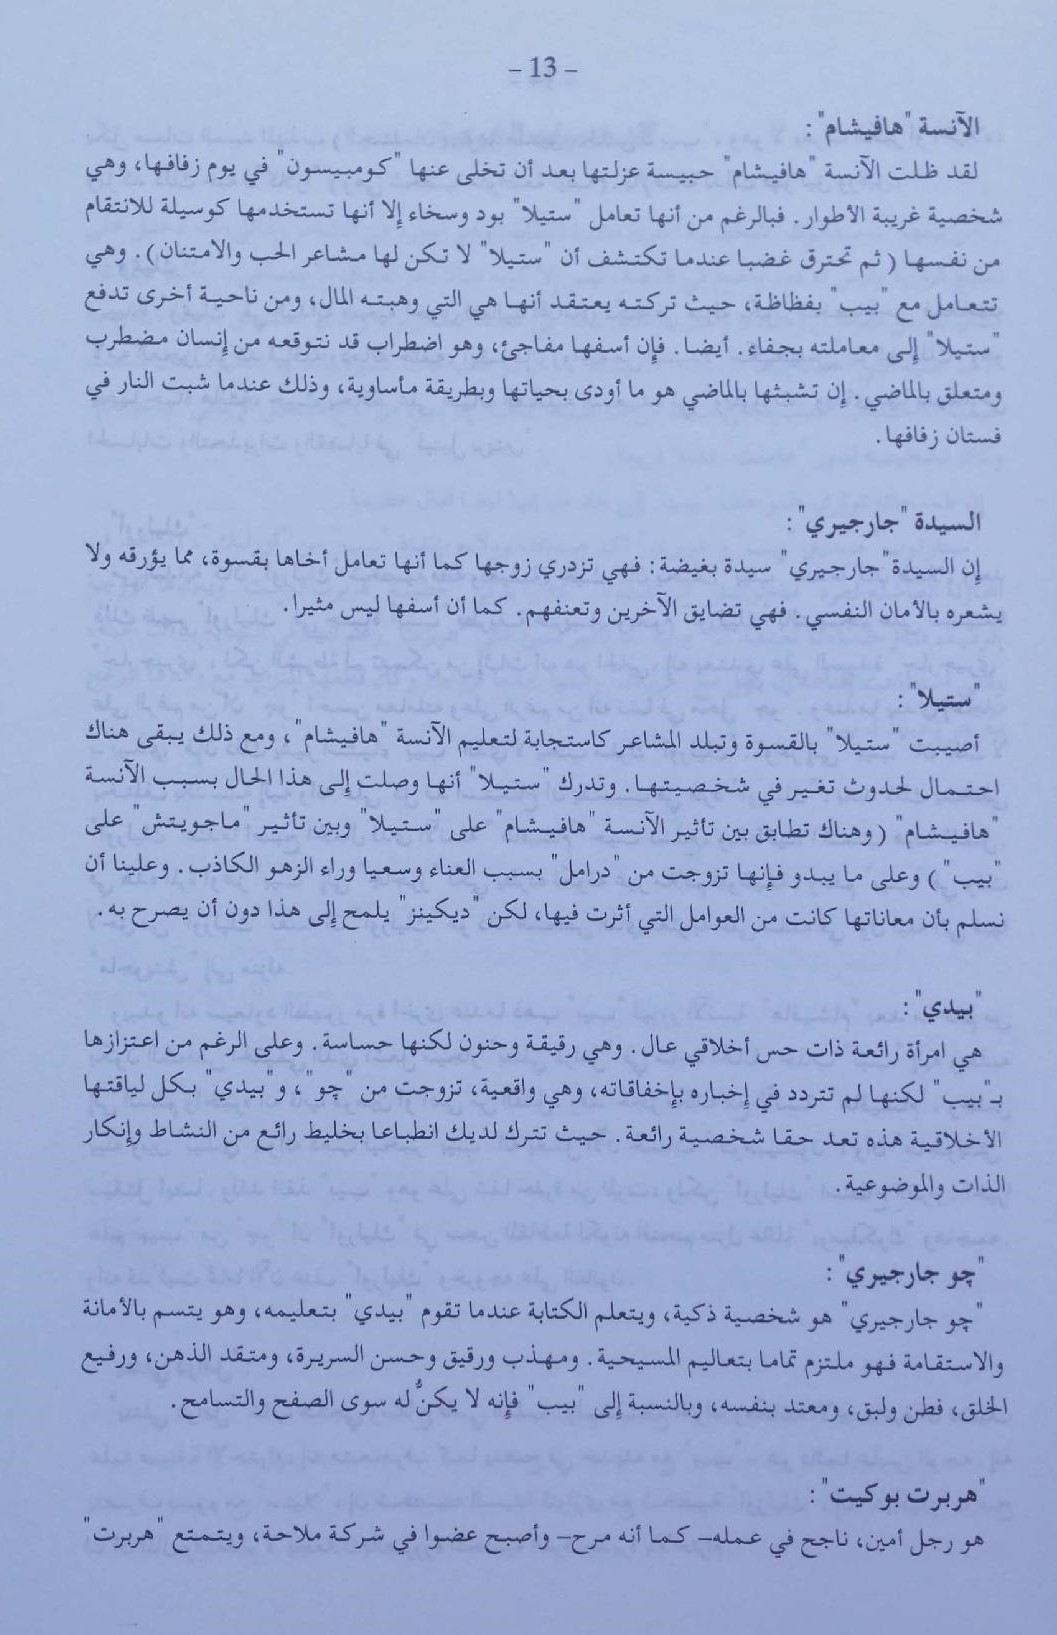 – 13 –
الآنسة "هافيشام":
لقد ظلت الآنسة "هافيشام" حبيسة عزلتها بعد أن تخلى عنها "كومبيسون" في يوم زفافها، وهي
شخصية غريبة الأطوار. فبالرغم من أنها تعامل "ستيلا" بود وسخاء إلا أنها تستخدمها كوسيلة للانتقام
من نفسها (ثم تحترق غضبا عندما تكتشف أن "ستيلا" لا تكن لها مشاعر الحب والامتنان). وهي
تتعامل مع "بيب" بفظاظة، حيث تركته يعتقد أنها هي التي وهبته المال، ومن ناحية أخرى تدفع
"ستيلا" إلى معاملته بجفاء. أيضا. فإن أسفها مفاجئ، وهو اضطراب قد نتوقعه من إنسان مضطرب
ومتعلق بالماضي. إن تشبثها بالماضي هو ما أودى بحياتها وبطريقة مأساوية، وذلك عندما شبت النار في
فستان زفافها.
السيدة "جارجيري":
إن السيدة "جارجيري" سيدة بغيضة: فهي تزدري زوجها كما أنها تعامل أخاها بقسوة، مما يؤرقه ولا
يشعره بالأمان النفسي. فهي تضايق الآخرين وتعنفهم. كما أن أسفها ليس مثيرا.
"ستيلا":
أصيبت "ستيلا" بالقسوة وتبلد المشاعر كاستجابة لتعليم الآنسة "هافيشام"، ومع ذلك يبقى هناك
احتمال لحدوث تغير في شخصيتها. وتدرك "ستيلا" أنها وصلت إلى هذا الحال بسبب الآنسة
"هافيشام" (وهناك تطابق بين تأثير الآنسة "هافيشام" على "ستيلا" وبين تأثير "ماجويتش" على
"بيب") وعلى ما يبدو فإنها تزوجت من "درامل" بسبب العناء وسعيا وراء الزهو الكاذب. وعلينا أن
نسلم بأن معاناتها كانت من العوامل التي أثرت فيها، لكن "ديكينز" يلمح إلى هذا دون أن يصرح به.
"بيدي":
هي امرأة رائعة ذات حس أخلاقي عال. وهي رقيقة وحنون لكنها حساسة. وعلى الرغم من اعتزازها
بـ"بيب" لكنها لم تتردد في إخباره بإخفاقاته، وهي واقعية، تزوجت من "چو"، و"بيدي" بكل لياقتها
الأخلاقية هذه تعد حقا شخصية رائعة. حيث تترك لديك انطباعا بخليط رائع من النشاط وإنكار
الذات والموضوعية.
"چو جارجيري":
"چو جارجيري" هو شخصية ذكية، ويتعلم الكتابة عندما تقوم "بيدي" بتعليمه، وهو يتسم بالأمانة
والاستقامة فهو ملتزم تماما بتعاليم المسيحية. ومهذب ورقيق وحسن السريرة، ومتقد الذهن، ورفيع
الخلق، فطن ولبق، ومعتد بنفسه، وبالنسبة إلى "بيب" فإنه لا يكنُّ له سوى الصفح والتسامح.
"هربرت بوكيت":
هو رجل أمين، ناجح في عمله– كما أنه مرح– وأصبح عضوا في شركة ملاحة، ويتمتع "هربرت"